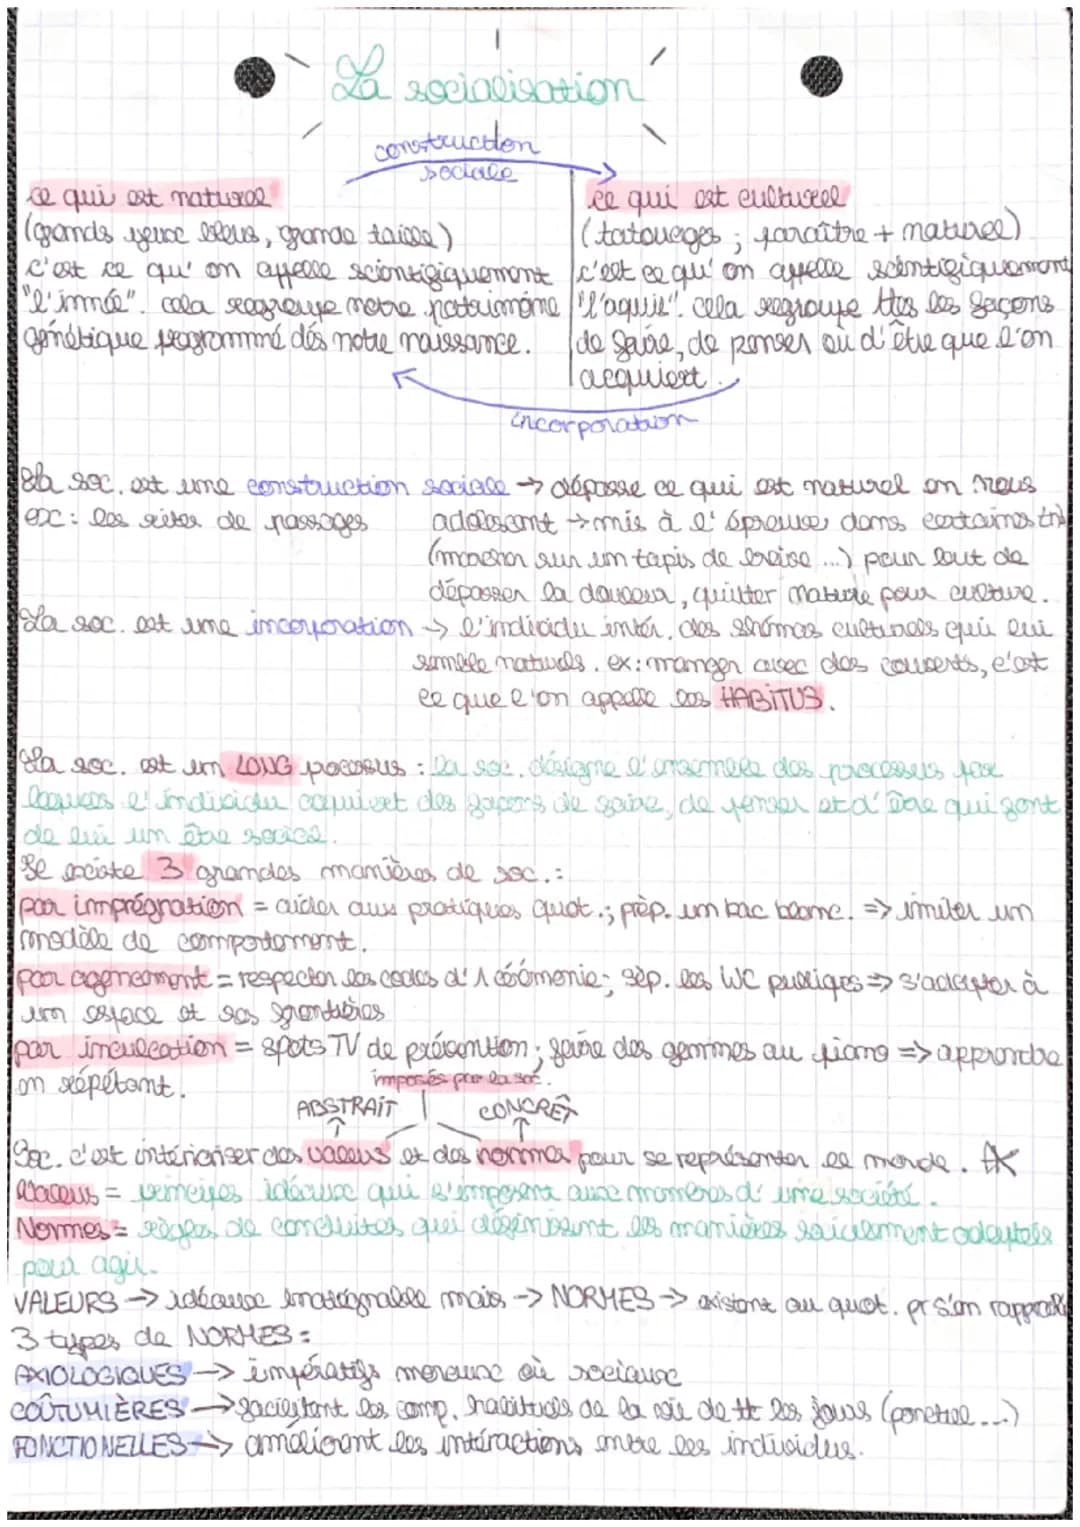 La socialisation
construction
sociale
ce qui est naturel
(grands yeux bleus, grande taille)
c'est ce qu'on appelle scientifiquement
"l'innée". cela regroupe notre patrimoine
génétique programmé dés notre naissance.
ce qui est culturel
(tatouages ; paraître + naturel)
c'est ce qu'on appelle scientifiquement
"l'aquis". cela regroupe ttes les façons
de faire, de penser où d'être que l'on
acquiert.
incorporation
La soc. est une construction sociale → dépasse ce qui est naturel en nous
ex: les rites de passages
adolescent → mis à l'épreuve dans certaines
(marcher sur un tapis de braise ...) pour but de
dépasser la douleur, quitter nature pour culture.
La soc. est une incorporation → l'individu intér. des shémas culturels qui lui
semble naturels. ex: manger avec des couverts, c'est
ce que l'on appelle les HABITUS.
La soc. est un LONG processus : la soc. désigne l'ensemble des processus par
lesquels l'individu acquiert des façons de faire, de penser et d'être qui font
de lui un être social.
Il existe 3 grandes manières de soc. :
par imprégnation = aider aux pratiques quot. ; prép. un bac blanc. => imiter un
modèle de comportement.
par agencement = respecter les codes d'1 cérémonie ; sép. les WC publiques => s'adapter à
un espace et ses frontières
par inculcation = spots TV de prévention ; faire des gammes au piano => apprendre
en répétant.
imposés par la soc.
ABSTRAIT
CONCRÊT
Soc. c'est intérioriser des valeurs et des normes pour se représenter le monde.
Valeurs = principes idéaux qui s'imposent aux membres d'une société.
Normes = règles de conduites qui définissent les manières socialement adaptées
pour agir.
VALEURS → idéaux inatteignable mais → NORMES → existent au quot. pr s'en
3 types de NORMES :
AXIOLOGIQUES → impératifs moraux où sociaux
COÛTUMIÈRES → facilitant les comp. habituels de la vie de tt les jours (ponctuel ...)
FONCTIONELLES → améliorent les intéractions entre les individus.